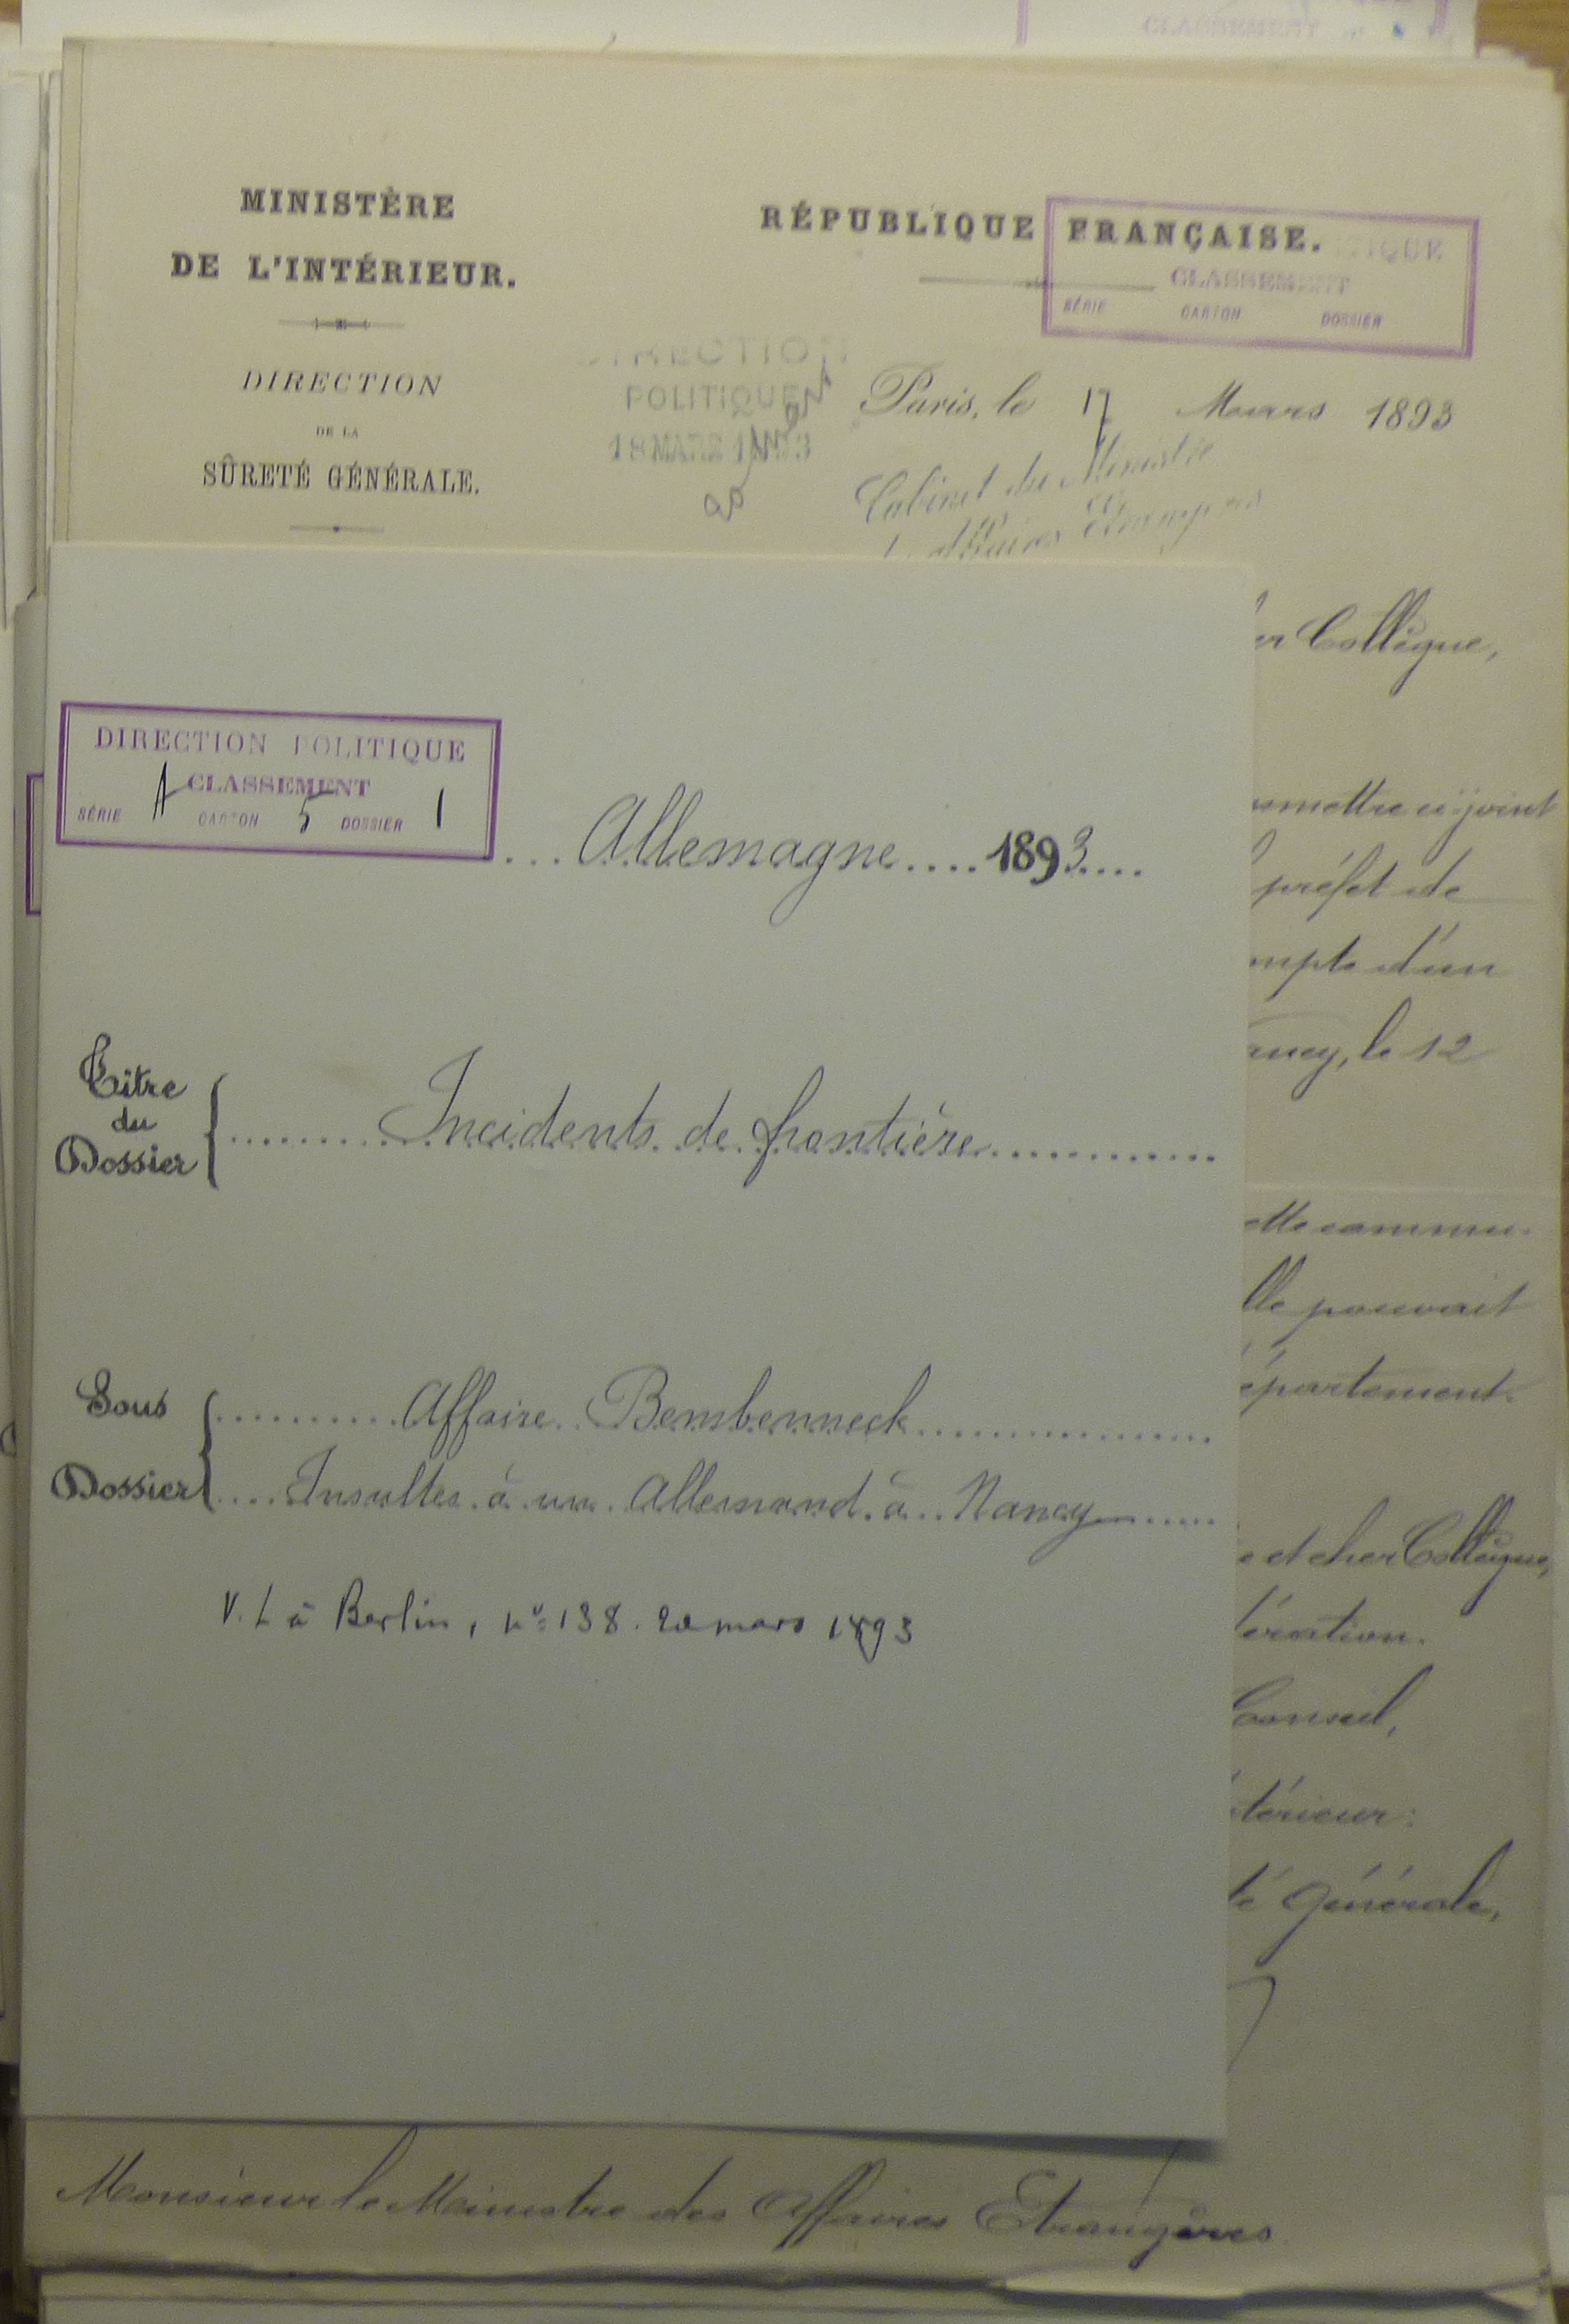 CLASSEMENT
MINISTÈRE
DE L'INTÉRIEUR.
DIRECTION
DE LA
SÛRETÉ GÉNÉRALE.
DIRECTION
POLITIQUE
18 MARS 1893
RÉPUBLIQUE FRANÇAISE.
CLASSEMENT
SÉRIE CARTON DOSSIER
Paris, le 17 Mars 1893
Cabinet du Ministre
Affaires Etrangères
er Collègue,
nsmettre ci-joint
préfet de
ompte d'un
ancy, le 12
ette commu-
lle pouvait
épartement.
e et cher Collègue,
ération.
Conseil,
térieur:
té Générale,
DIRECTION POLITIQUE
CLASSEMENT
SÉRIE A CARTON 5 DOSSIER 1
Allemagne 1893
Titre
du
Dossier
Incidents de frontière
Sous
Dossier
Affaire Bembenneck
Insultes à un Allemand à Nancy
V. L à Berlin, nº 138. 20 mars 1893
Monsieur le Ministre des Affaires Etrangères